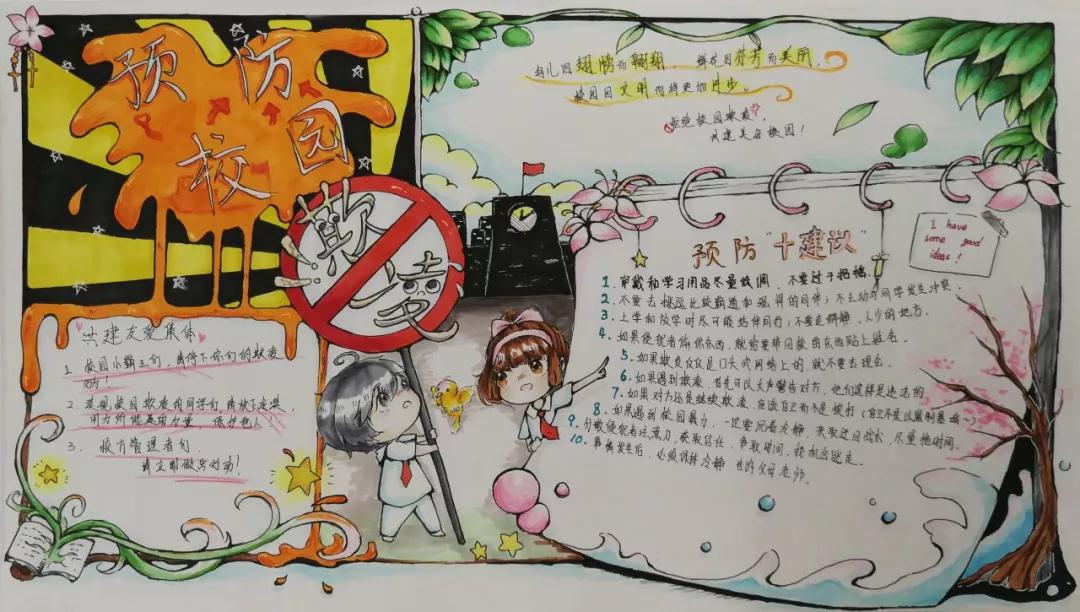 预防
校园
欺凌
幼儿因翅膀而翱翔，鲜花因芬芳而美丽，
校园因文明而将更加进步。
拒绝校园欺凌，
共建美好校园！
I have
some good
ideas!
预防"十建议"
1. 穿戴和学习用品尽量低调，不要过于招摇。
2. 不要去挑逗比较霸道和强悍的同伴；不主动与同学发生冲突。
3. 上学和放学时尽可能结伴同行；不要走僻静、人少的地方。
4. 如果侵犯者偷你东西，就给要带回校的东西贴上姓名。
5. 如果欺负仅仅是口头或网络上的，就不要去理会。
6. 如果遇到欺凌，首先可以大声警告对方，他们这样是违法的
7. 如果对方还是继续欺凌，应该自卫而不是报打（自卫不是以暴制暴哦～）
8. 如果遇到校园暴力，一定要沉着冷静，采取迂回战术，尽量拖时间。
9. 分散侵犯者注意力，获取信任，争取时间，找机会逃走。
10. 事情发生后，必须保持冷静，告诉父母老师。
共建友爱集体
1. 校园小霸王们，请停下你们的欺凌
2. 发现校园欺凌的同学们，请放下冷漠，
用力所能及的力量，保护他人
3. 校方管理者们，
请立即做出行动！